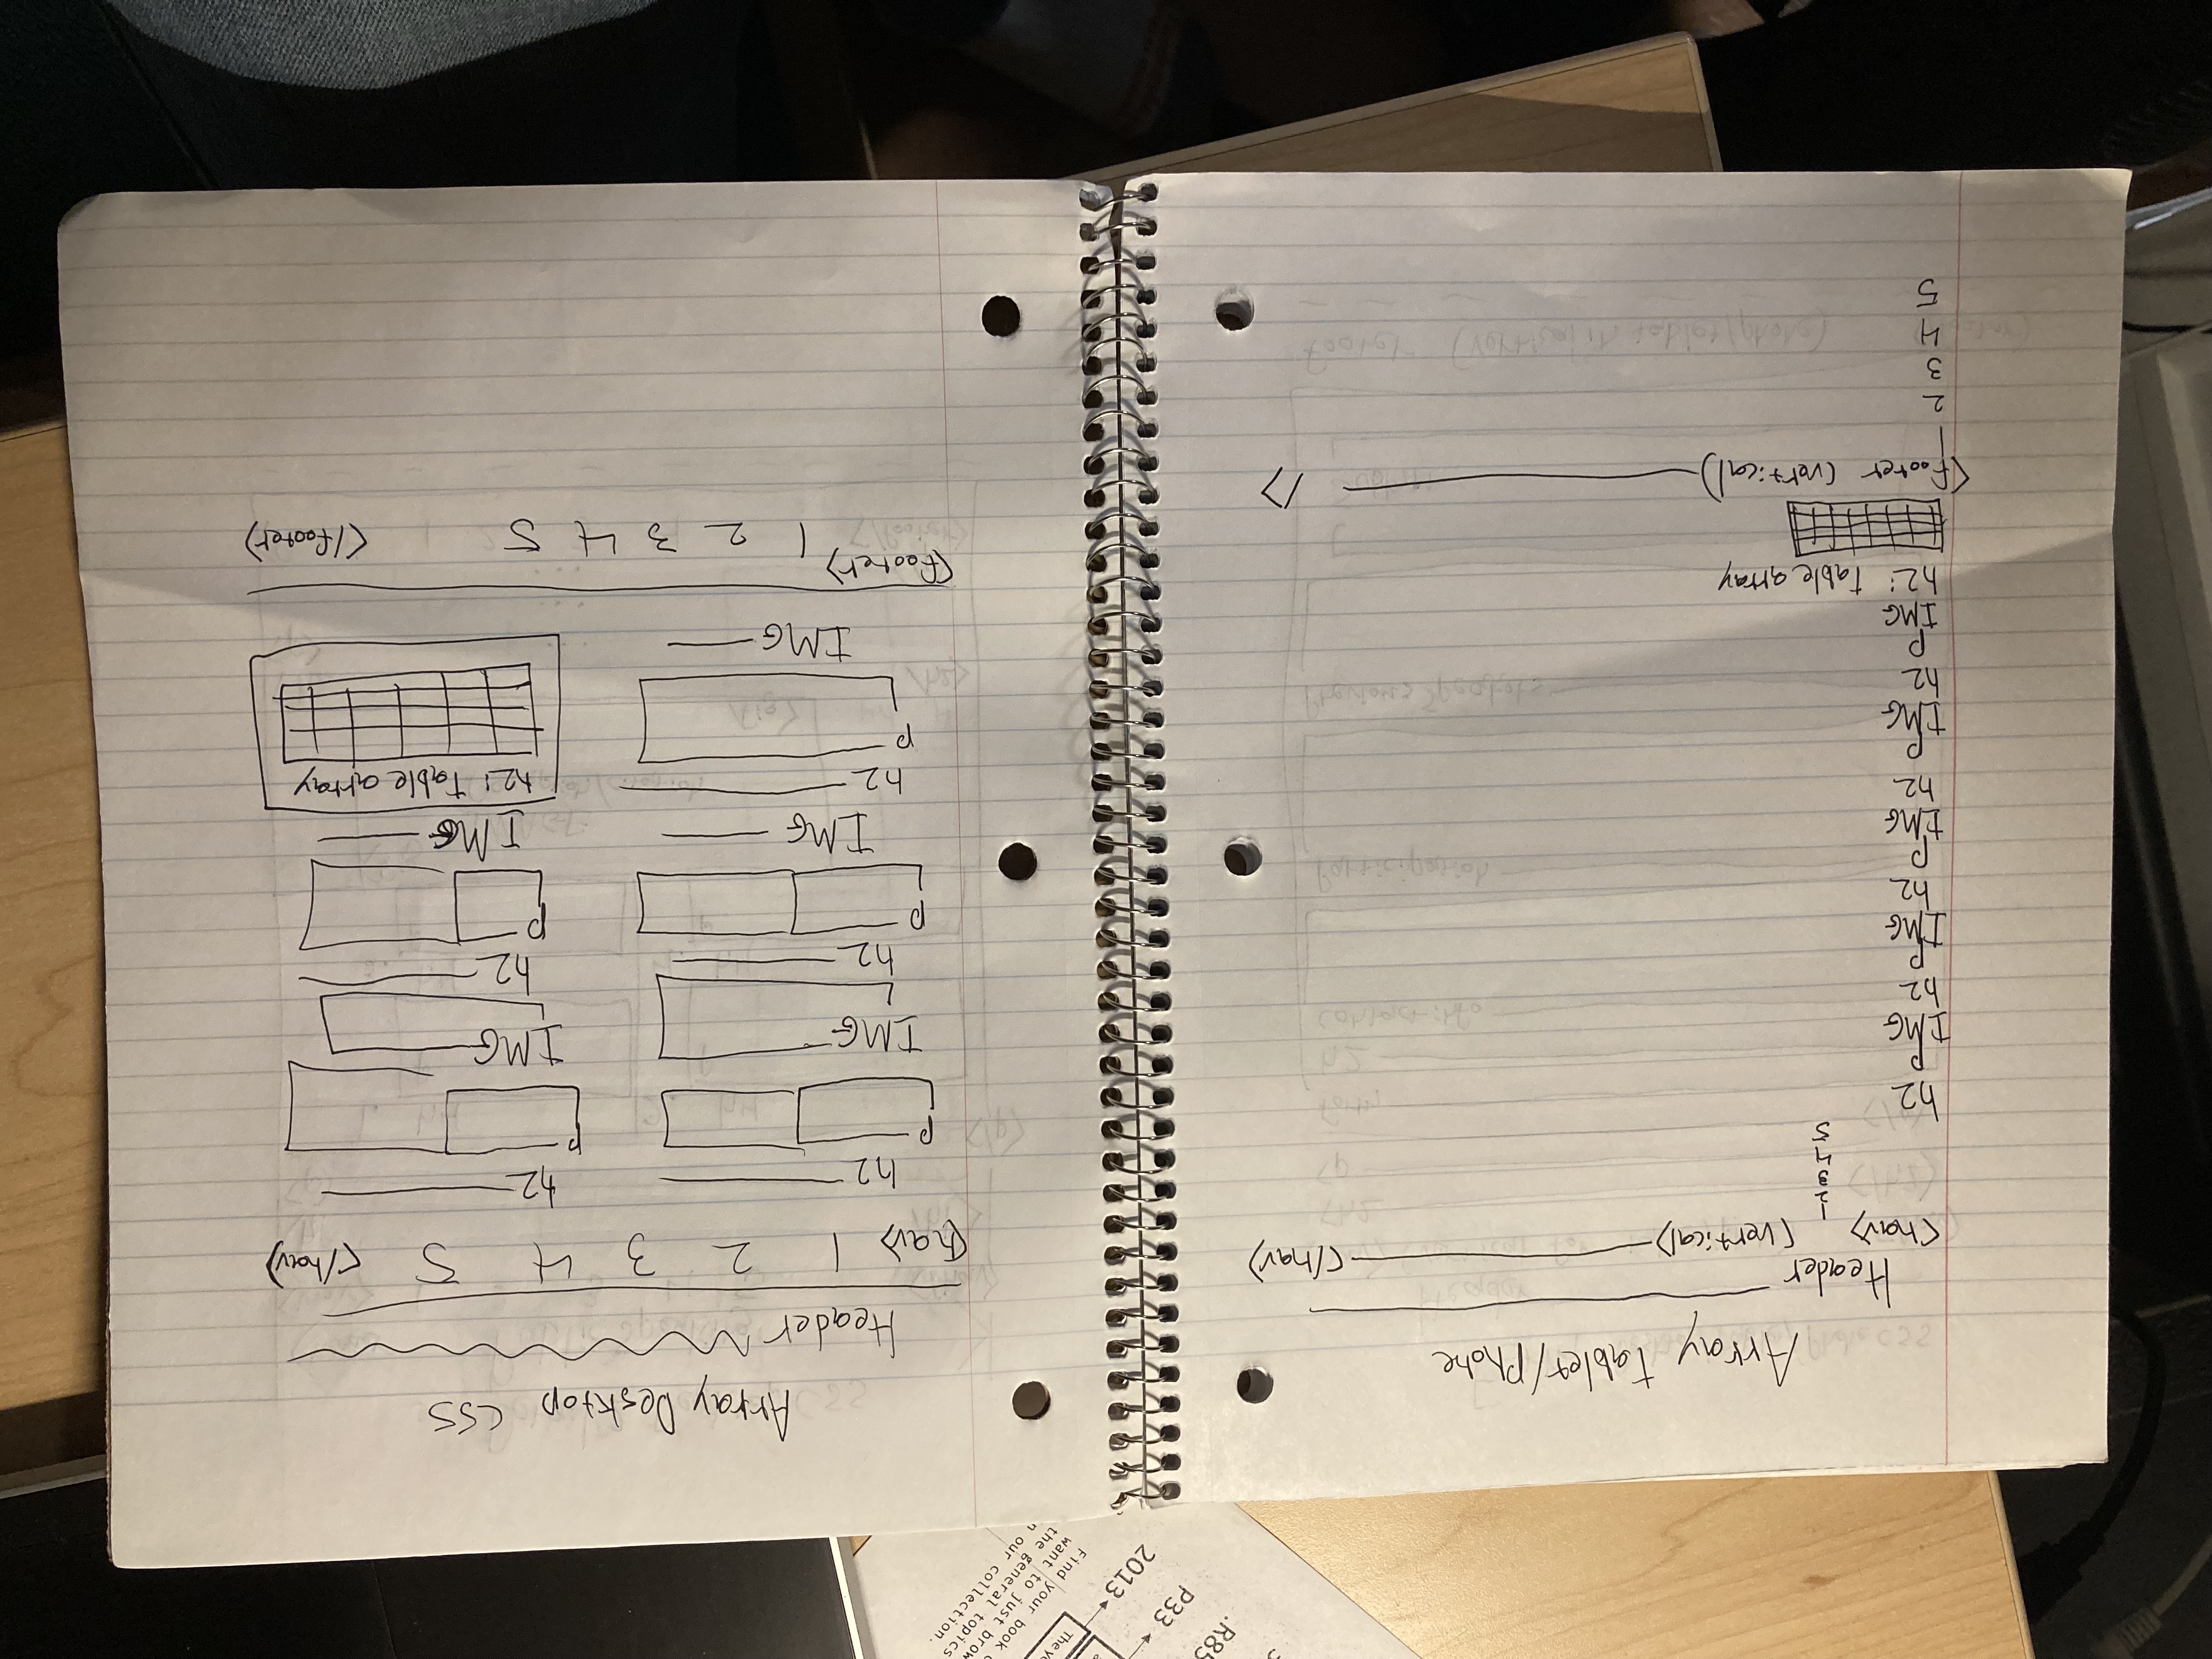 Array Tablet/Phone
Header
<nav> (vertical) </nav>
1
2
3
4
5
h2
P
IMG
h2
P
IMG
h2
P
IMG
h2
P
IMG
h2
P
IMG
h2: Table array
<footer (vertical) />
1
2
3
4
5
Array Desktop CSS
Header
<nav> 1 2 3 4 5 </nav>
h2 h2
P P
IMG IMG
h2 h2
P P
IMG IMG
h2 h2: Table array
P
IMG
<footer> 1 2 3 4 5 </footer>
.R85
P33
2013
Find your book
want to just brow
the general topics
n our collection.